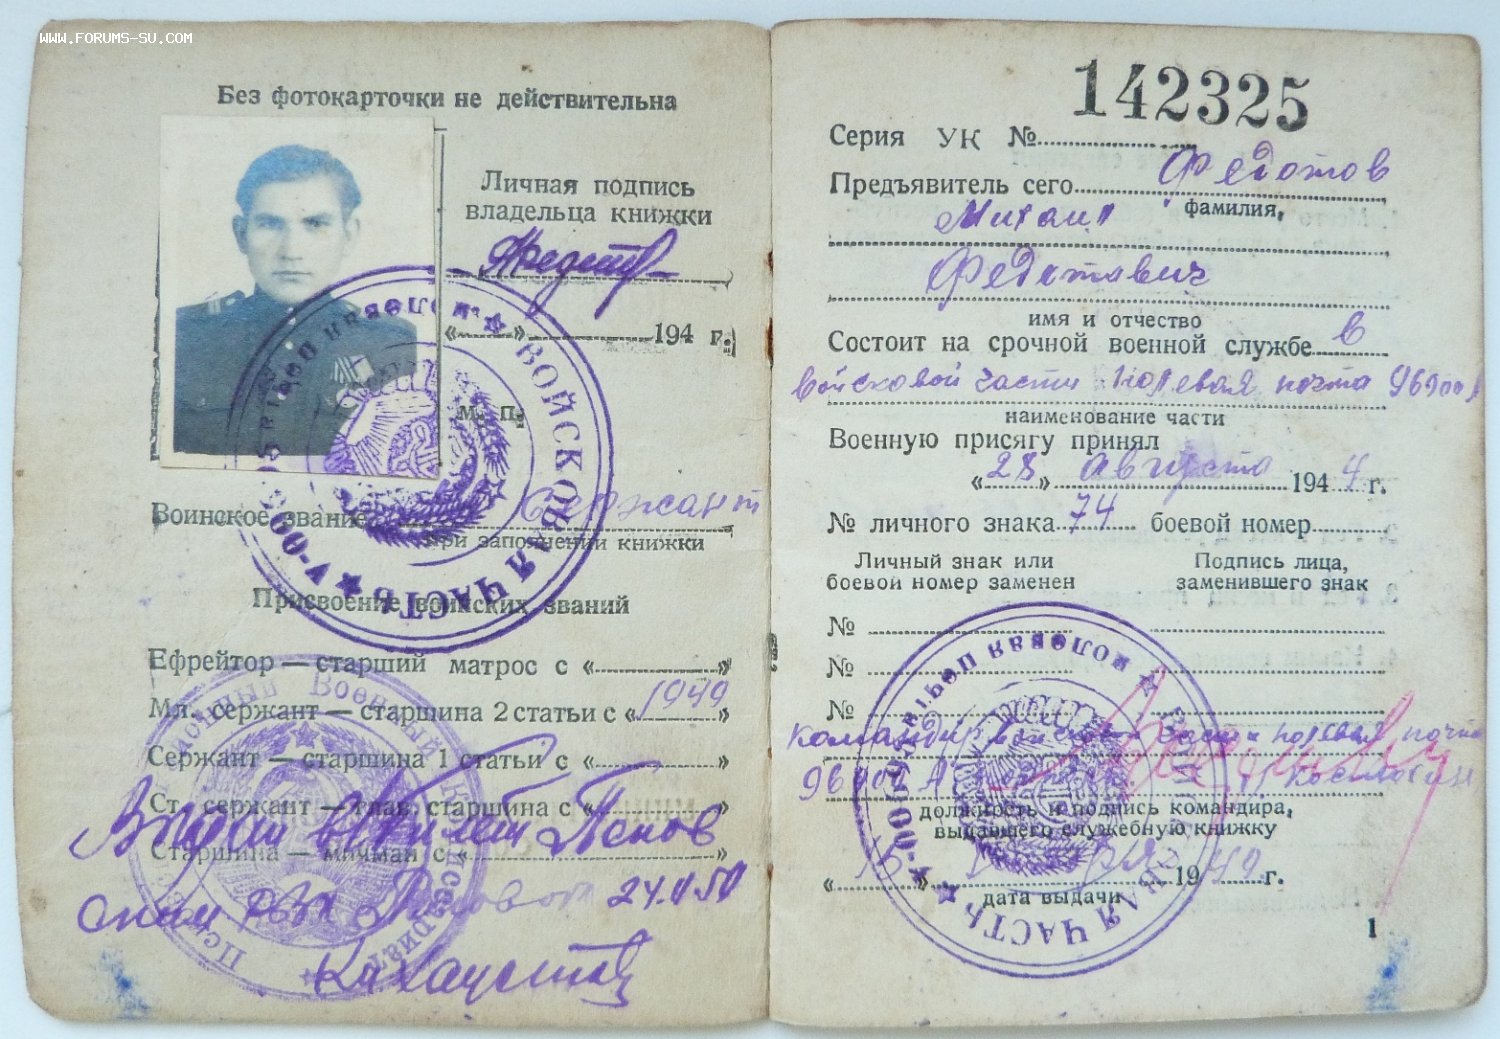 www.forums-su.com
Без фотокарточки не действительна
Личная подпись
владельца книжки
« » 194 г.
м. п.
Воинское звание Сержант
при заполнении книжки
Присвоение воинских званий
Ефрейтор — старший матрос с « »
Мл. сержант — старшина 2 статьи с « 1949 »
Сержант — старшина 1 статьи с « »
Ст. сержант — глав. старшина с « »
Старшина — мичман с « »
Выдан в/билет
ВОЙСКОВАЯ ЧАСТЬ
142325
Серия УК №
Предъявитель сего Федотов
фамилия,
Михаил
Федотавич
имя и отчество
Состоит на срочной военной службе в
войсковой части полевая почта
наименование части
Военную присягу принял
« 28 » августа 194 4 г.
№ личного знака 74 боевой номер
Личный знак или
боевой номер заменен
Подпись лица,
заменившего знак
№
№
№
командир войсковой части полевая почта
должность и подпись командира,
выдавшего служебную книжку
« » 19 49 г.
дата выдачи
ВОЙСКОВАЯ ЧАСТЬ
1